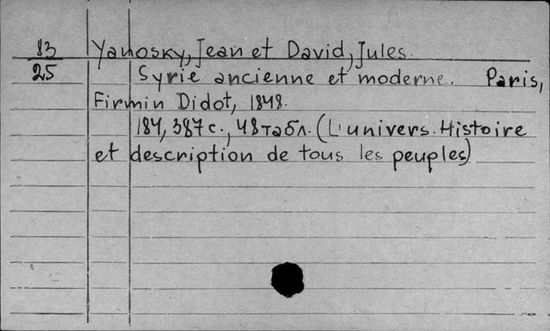 13 Yanosky, Jean et David, Jules.
25 Syrie ancienne et moderne. Paris,
Firmin Didot, 1848.
184, 387 с., 48 табл. (L'univers. Histoire
et description de tous les peuples)